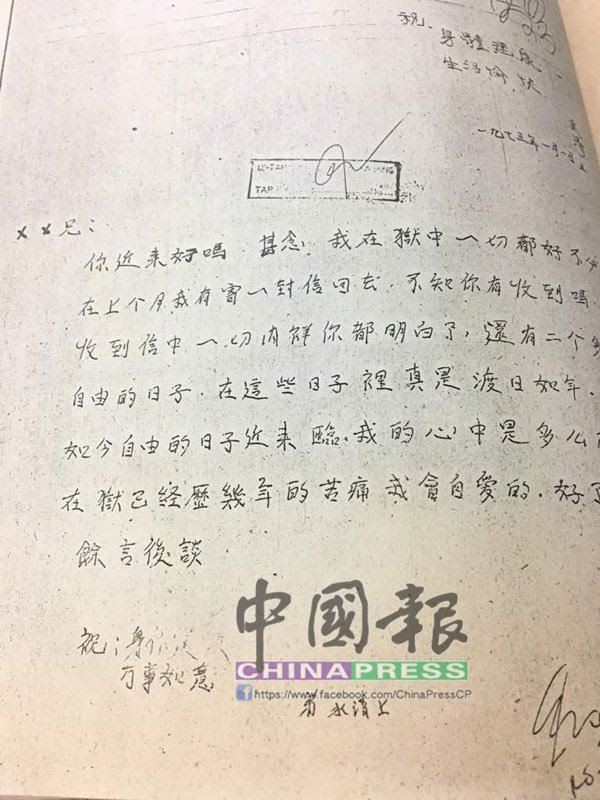 祝.
身體健康.
生活愉快.
一九七五年一月一日
TAR
××兄:
你近来好嗎 甚念. 我在獄中一切都好 不必
在上个月我有寄一封信回去. 不知你有收到嗎
收到信中一切内詳你都明白了, 還有二个多
自由的日子. 在這些日子裡真是渡日如年.
如今自由的日子近来臨. 我的心中是多么
在獄已经歷幾年的苦痛我會自愛的. 好了
餘言後談
祝: 身体
万事如意
中國報
CHINA PRESS
https://www.facebook.com/ChinaPressCP
上